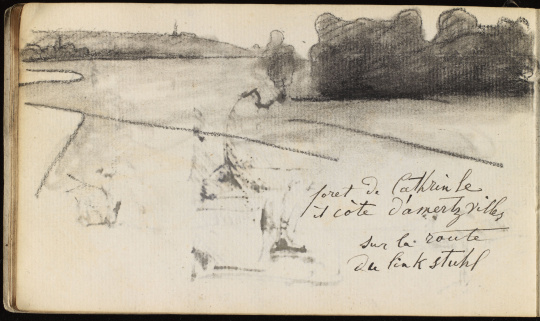 foret de Cathrinle
et côte d'amertzvilles
sur la route
du linkstuhl